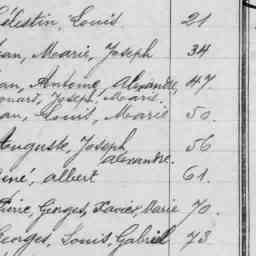 Célestin, Louis 21
Jean, Marie, Joseph 34
Jean, Antoine, Alexandre, 47
Joseph, Marie.
Jean, Louis, Marie 50.
Auguste, Joseph 56
Alexandre.
René, Albert 61.
Pierre, Georges, Xavier, Marie 70.
Georges, Louis, Gabriel 73.